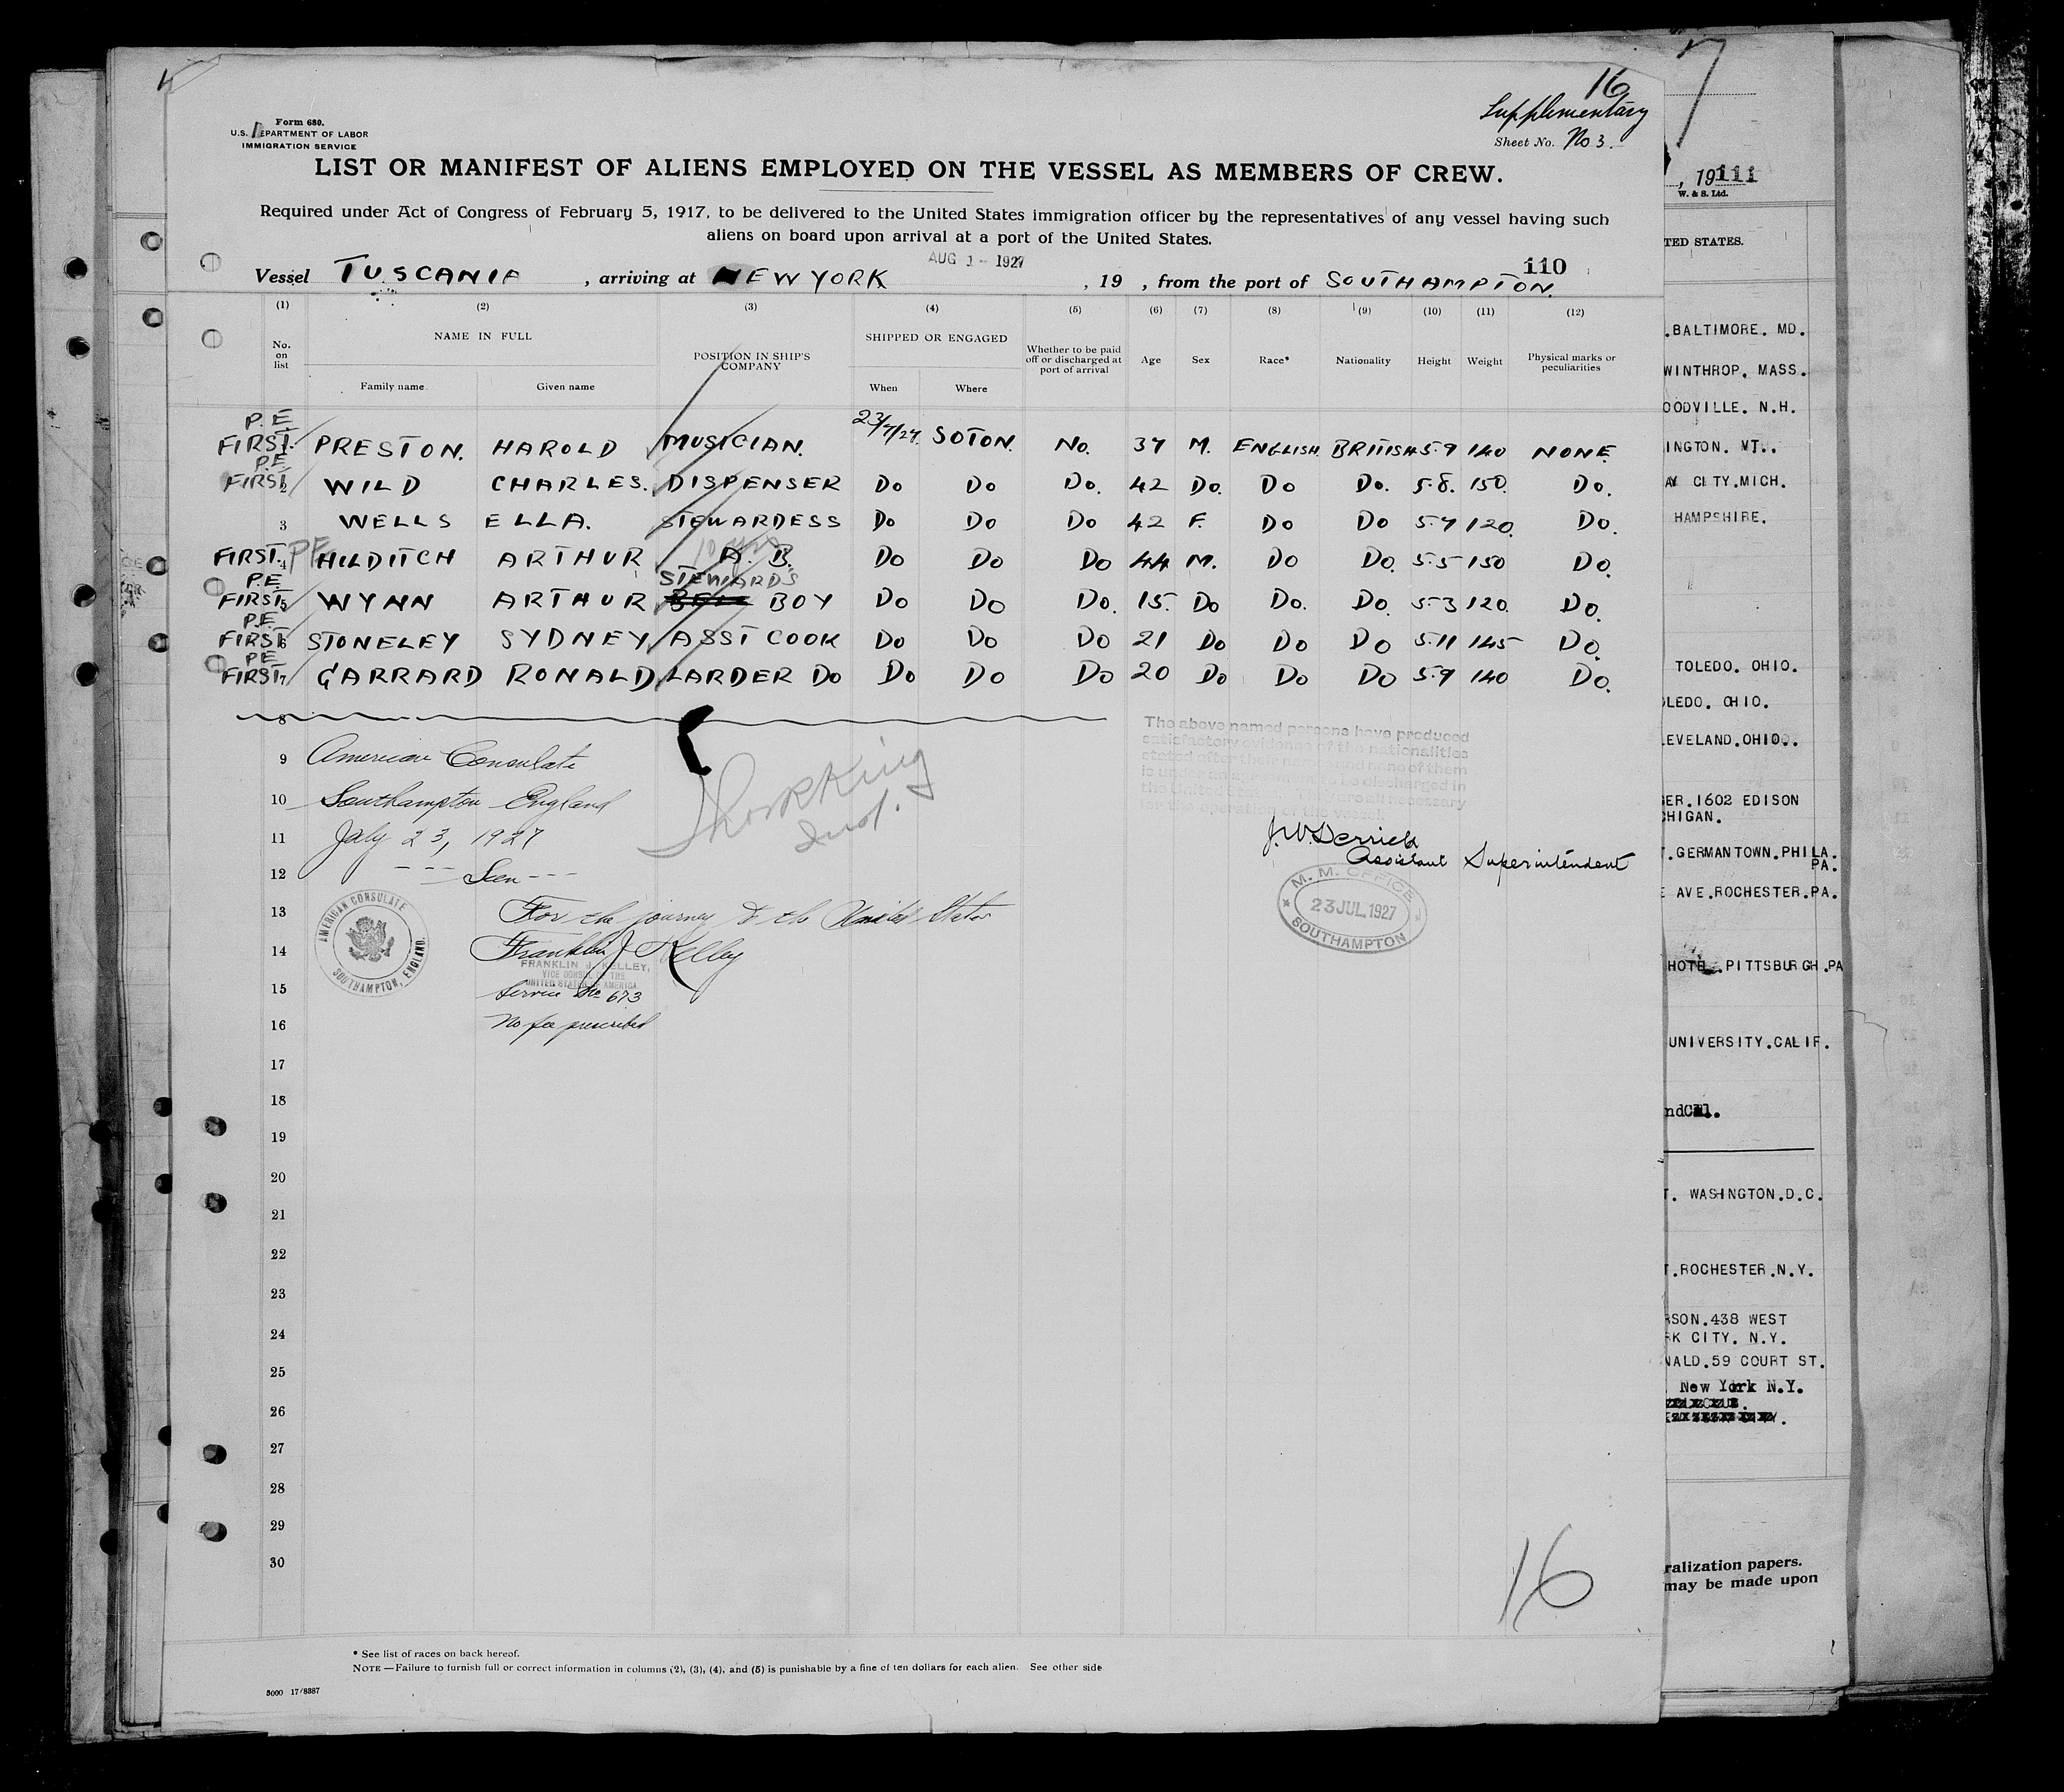 16
Supplementary
Form 680.
U.S. DEPARTMENT OF LABOR
IMMIGRATION SERVICE
Sheet No. No 3.
LIST OR MANIFEST OF ALIENS EMPLOYED ON THE VESSEL AS MEMBERS OF CREW.
, 19111
W. & S. Ltd.
Required under Act of Congress of February 5, 1917, to be delivered to the United States immigration officer by the representatives of any vessel having such
aliens on board upon arrival at a port of the United States.
TED STATES.
AUG 1 - 1927
110
Vessel TUSCANIA , arriving at NEW YORK , 19 , from the port of SOUTHAMPTON.
(1) (2) (3) (4) (5) (6) (7) (8) (9) (10) (11) (12)
No. on list NAME IN FULL POSITION IN SHIP'S COMPANY SHIPPED OR ENGAGED Whether to be paid off or discharged at port of arrival Age Sex Race* Nationality Height Weight Physical marks or peculiarities
Family name Given name When Where
P.E.
FIRST. PRESTON. HAROLD MUSICIAN. 23/7/27. SOTON. No. 37 M. ENGLISH. BRITISH 5.9 140 NONE.
P.E.
FIRST 2 WILD CHARLES. DISPENSER Do Do Do. 42 Do. Do Do. 5.8. 150. Do.
3 WELLS ELLA. STEWARDESS Do Do Do 42 F. Do Do 5.7 120. Do.
FIRST. 4 PE HILDITCH ARTHUR A. B. Do Do Do 44 M. Do Do. 5.5 150 Do.
P.E. STEWARDS
FIRST 5 WYNN ARTHUR BOY Do Do Do. 15. Do Do. Do. 5.3 120. Do.
P.E.
FIRST 6 STONELEY SYDNEY ASST COOK Do Do Do 21 Do Do Do 5.11 145 Do.
P.E.
FIRST 7 GARRARD RONALD LARDER Do Do Do Do 20 Do Do Do 5.9 140 Do.
8
The above named persons have produced
satisfactory evidence of the nationalities
stated after their names and none of them
is under an agreement to be discharged in
the United States. They are all necessary
operation of the vessel.
9 American Consulate
10 Southampton England
11 July 23, 1927
J.W. Derrick
Assistant Superintendent
12 --- Seen ---
M. M. OFFICE
23 JUL 1927
SOUTHAMPTON
AMERICAN CONSULATE
SOUTHAMPTON, ENGLAND.
13 For the journey to the United States
14 Franklin J Kelley
FRANKLIN J. KELLEY,
VICE CONSUL OF THE
UNITED STATES OF AMERICA
15 Service No 673
16 No fee prescribed
17
18
19
20
21
22
23
24
25
26
27
28
29
30
16
* See list of races on back hereof.
NOTE —Failure to furnish full or correct information in columns (2), (3), (4), and (5) is punishable by a fine of ten dollars for each alien. See other side
5000 17/8387
.BALTIMORE. MD.
WINTHROP. MASS.
OODVILLE. N.H.
INGTON. VT..
AY CITY.MICH.
HAMPSHIRE.
TOLEDO. OHIO.
OLEDO. OHIO.
LEVELAND.OHIO..
GER.1602 EDISON
CHIGAN.
T.GERMANTOWN.PHILA.
PA.
E AVE.ROCHESTER.PA.
HOTEL.PITTSBURGH.PA
UNIVERSITY.CALIF.
ndCal.
T. WASHINGTON.D.C.
T.ROCHESTER.N.Y.
RSON.438 WEST
RK CITY. N.Y.
NALD.59 COURT ST.
New York N.Y.
ralization papers.
may be made upon